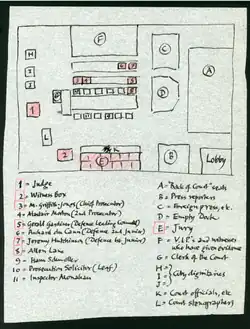 F
C
H
I
A
J
D
1
G
K
L
2
E
B
Lobby
1 = Judge
2 = Witness Box
3 = M. Griffith-Jones (Chief Prosecutor)
4 = Mervin (2nd Prosecutor)
5 = Gerald Gardiner (Defence Leading Counsel)
6 = Richard du Cann (Defence 2nd Junior)
7 = Jeremy Hutchinson (Defence 1st Junior)
8 = Allen Lane
9 = Hans Schmoller
10 = Prosecution Solicitor
11 = Inspector Monahan
A = "Back of Court" seats
B = Press reporters
C = Foreign press, etc.
D = Empty Dock
E = Jury
F = V.I.P.s and witnesses who have given evidence
G = Clerk of the Court
H =
I = } City dignitaries
J =
K = Court officials, etc.
L = Court stenographers